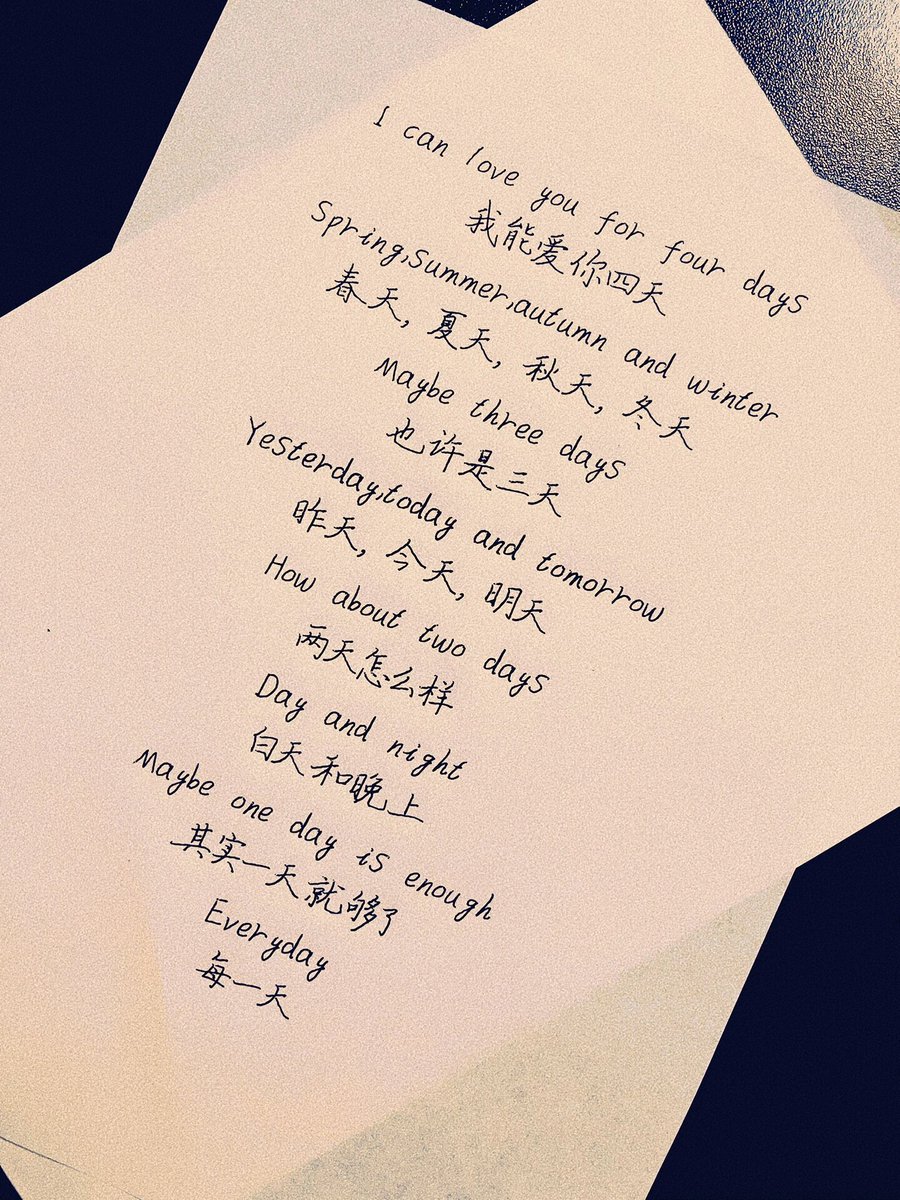 I can love you for four days
我能爱你四天
Spring,summer,autumn and winter
春天,夏天,秋天,冬天
Maybe three days
也许是三天
Yesterday,today and tomorrow
昨天,今天,明天
How about two days
两天怎么样
Day and night
白天和晚上
Maybe one day is enough
其实一天就够了
Everyday
每一天